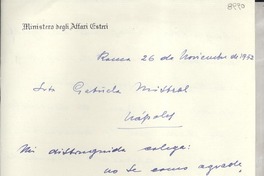 8990
Ministero degli Affari Esteri
Roma 26 de Noviembre de 1952
Srta Gabriela Mistral
Nápoles
Mi distinguida colega:
no se como agrade